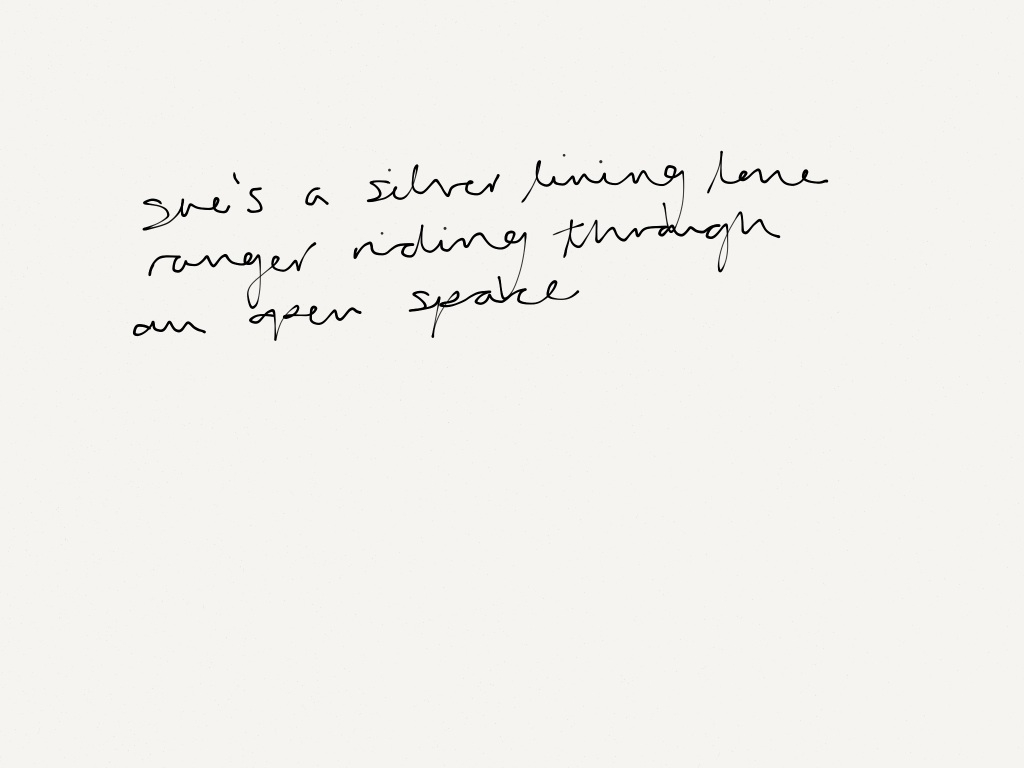 she's a silver lining lone
ranger riding through
an open space